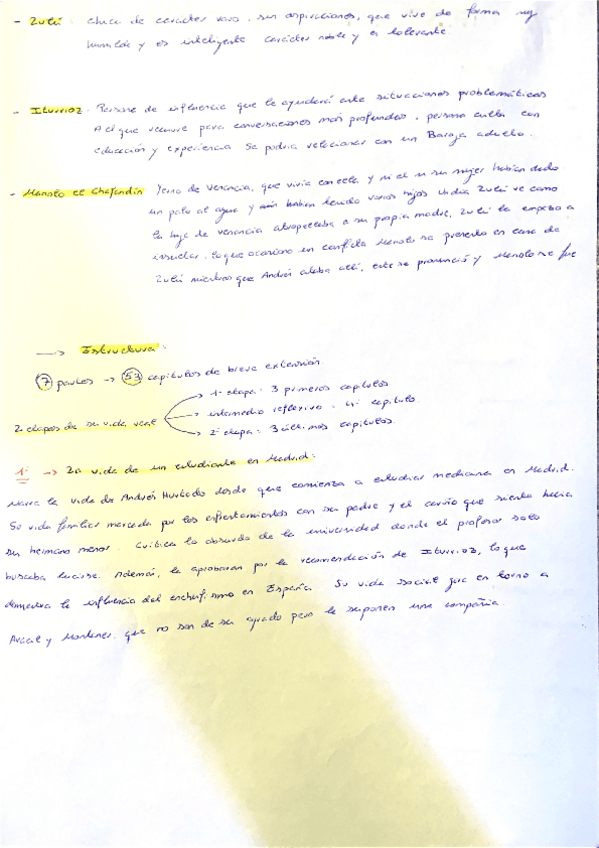 - Lulú: chica de carácter raro, sin aspiraciones, que vive de forma muy
humilde y es inteligente carácter noble y es tolerante.
- Iturrioz: Persona de influencia que le ayudará ante situaciones problemáticas
Al que recurre para conversaciones más profundas, persona culta con
educación y experiencia Se podria relacionar con un Baroja adulto.
- Manolo el Chafandin Yerno de Venancia, que vivia con ella y ni el ni su mujer habian dado
un palo al agua y aún habian tenido varios hijos Un dia Lulú ve como
la hija de Venancia atropellaba a su propia madre, Lulú la empezo a
insultar, lo que ocasiono un conflicto Manolo se presento en casa de
Lulú mientras que Andrés estaba allí, este se pronunció y Manolo se fue
—> Estructura:
7 partes -> 53 capitulos de breve extensión
2 etapas de su vida real
1ª etapa: 3 primeros capitulos
intermedio reflexivo: 4º capitulo
2ª etapa: 3 últimos capitulos.
1º -> La vida de un estudiante en Madrid:
Narra la vida de Andrés Hurtado desde que comienza a estudiar medicina en Madrid.
Su vida familiar marcada por los enfrentamientos con su padre y el cariño que siente hacia
su hermano menor. Critica lo absurdo de la universidad donde el profesor solo
buscaba lucirse. Además, le aprobaron por la recomendación de Iturrioz, lo que
demuestra la influencia del enchufismo en España Su vida social gira en torno a
Aracil y Montaner que no son de su agrado pero le suponen una compañia.